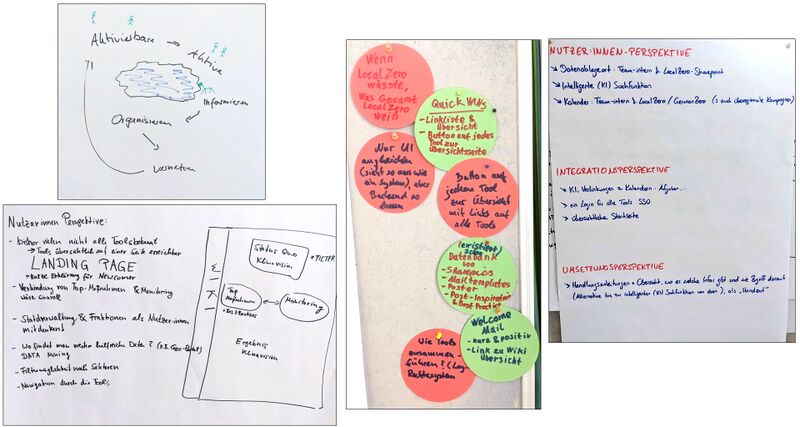 Aktivierbare
Aktive
Informieren
Organisieren
vernetzen
Nutzerinnen Perspektive:
- bisher vielen nicht alle Tools bekannt
→ Tools übersichtlich auf einer Seite erreichbar
LANDING PAGE
+ kurze Erklärung für Newcomer
- Verbindung von Top-Maßnahmen & Monitoring
wäre sinnvoll
- Stadtverwaltung & Fraktionen als Nutzer:innen
mitdenken!
- Wo findet man weitere hilfreiche Data? (z.B. Geo-Portal)
DATA Mining
- Filtermöglichkeit nach Sektoren
- Navigation durch die Tools
Status Quo
Klimavision
+ FILTER
Top
Maßnahmen
Monitoring
Ergebnis
Klimavision
Wenn
LocalZero
wüsste,
was Gesamt
LocalZero
weiß
Quick Wins
- Linkliste &
übersicht
- Button auf jedes
Tool zur
übersichtsseite
Nur UI
angleichen
(sieht so aus wie
ein System), aber
Backend so
lassen
Button auf
jedem Tool
zur Übersicht
mit Links auf
alle Tools
(existiert)
Datenbank
von
- Sharepics
- Mailtemplates
- Poster
- Post-Inspiration
& Best Practice
Welcome
Mail
- kurz & positiv
- Link zu Wiki
übersicht
Wie Tools
zusammen-
führen? (Login,
Rechtesystem)
NUTZER:INNEN-PERSPEKTIVE
→ Datenablageort: Team-intern & LocalZero-Sharepoint
→ Intelligente (KI) Suchfunktion
→ Kalender: Team-intern & LocalZero / GermanZero (s. auch überregionale Kampagnen)
INTEGRATIONSPERSPEKTIVE
→ KI, Verlinkungen zu Kalendern
→ ein Login für alle Tools SSO
→ übersichtliche Startseite
UMSETZUNGSPERSPEKTIVE
→ Handlungsanleitungen + Übersicht, wo es welche Infos gibt und wie Zugriff darauf
(Alternative bis zur intelligenten (KI) Suchfunktion von oben), als „Handout"